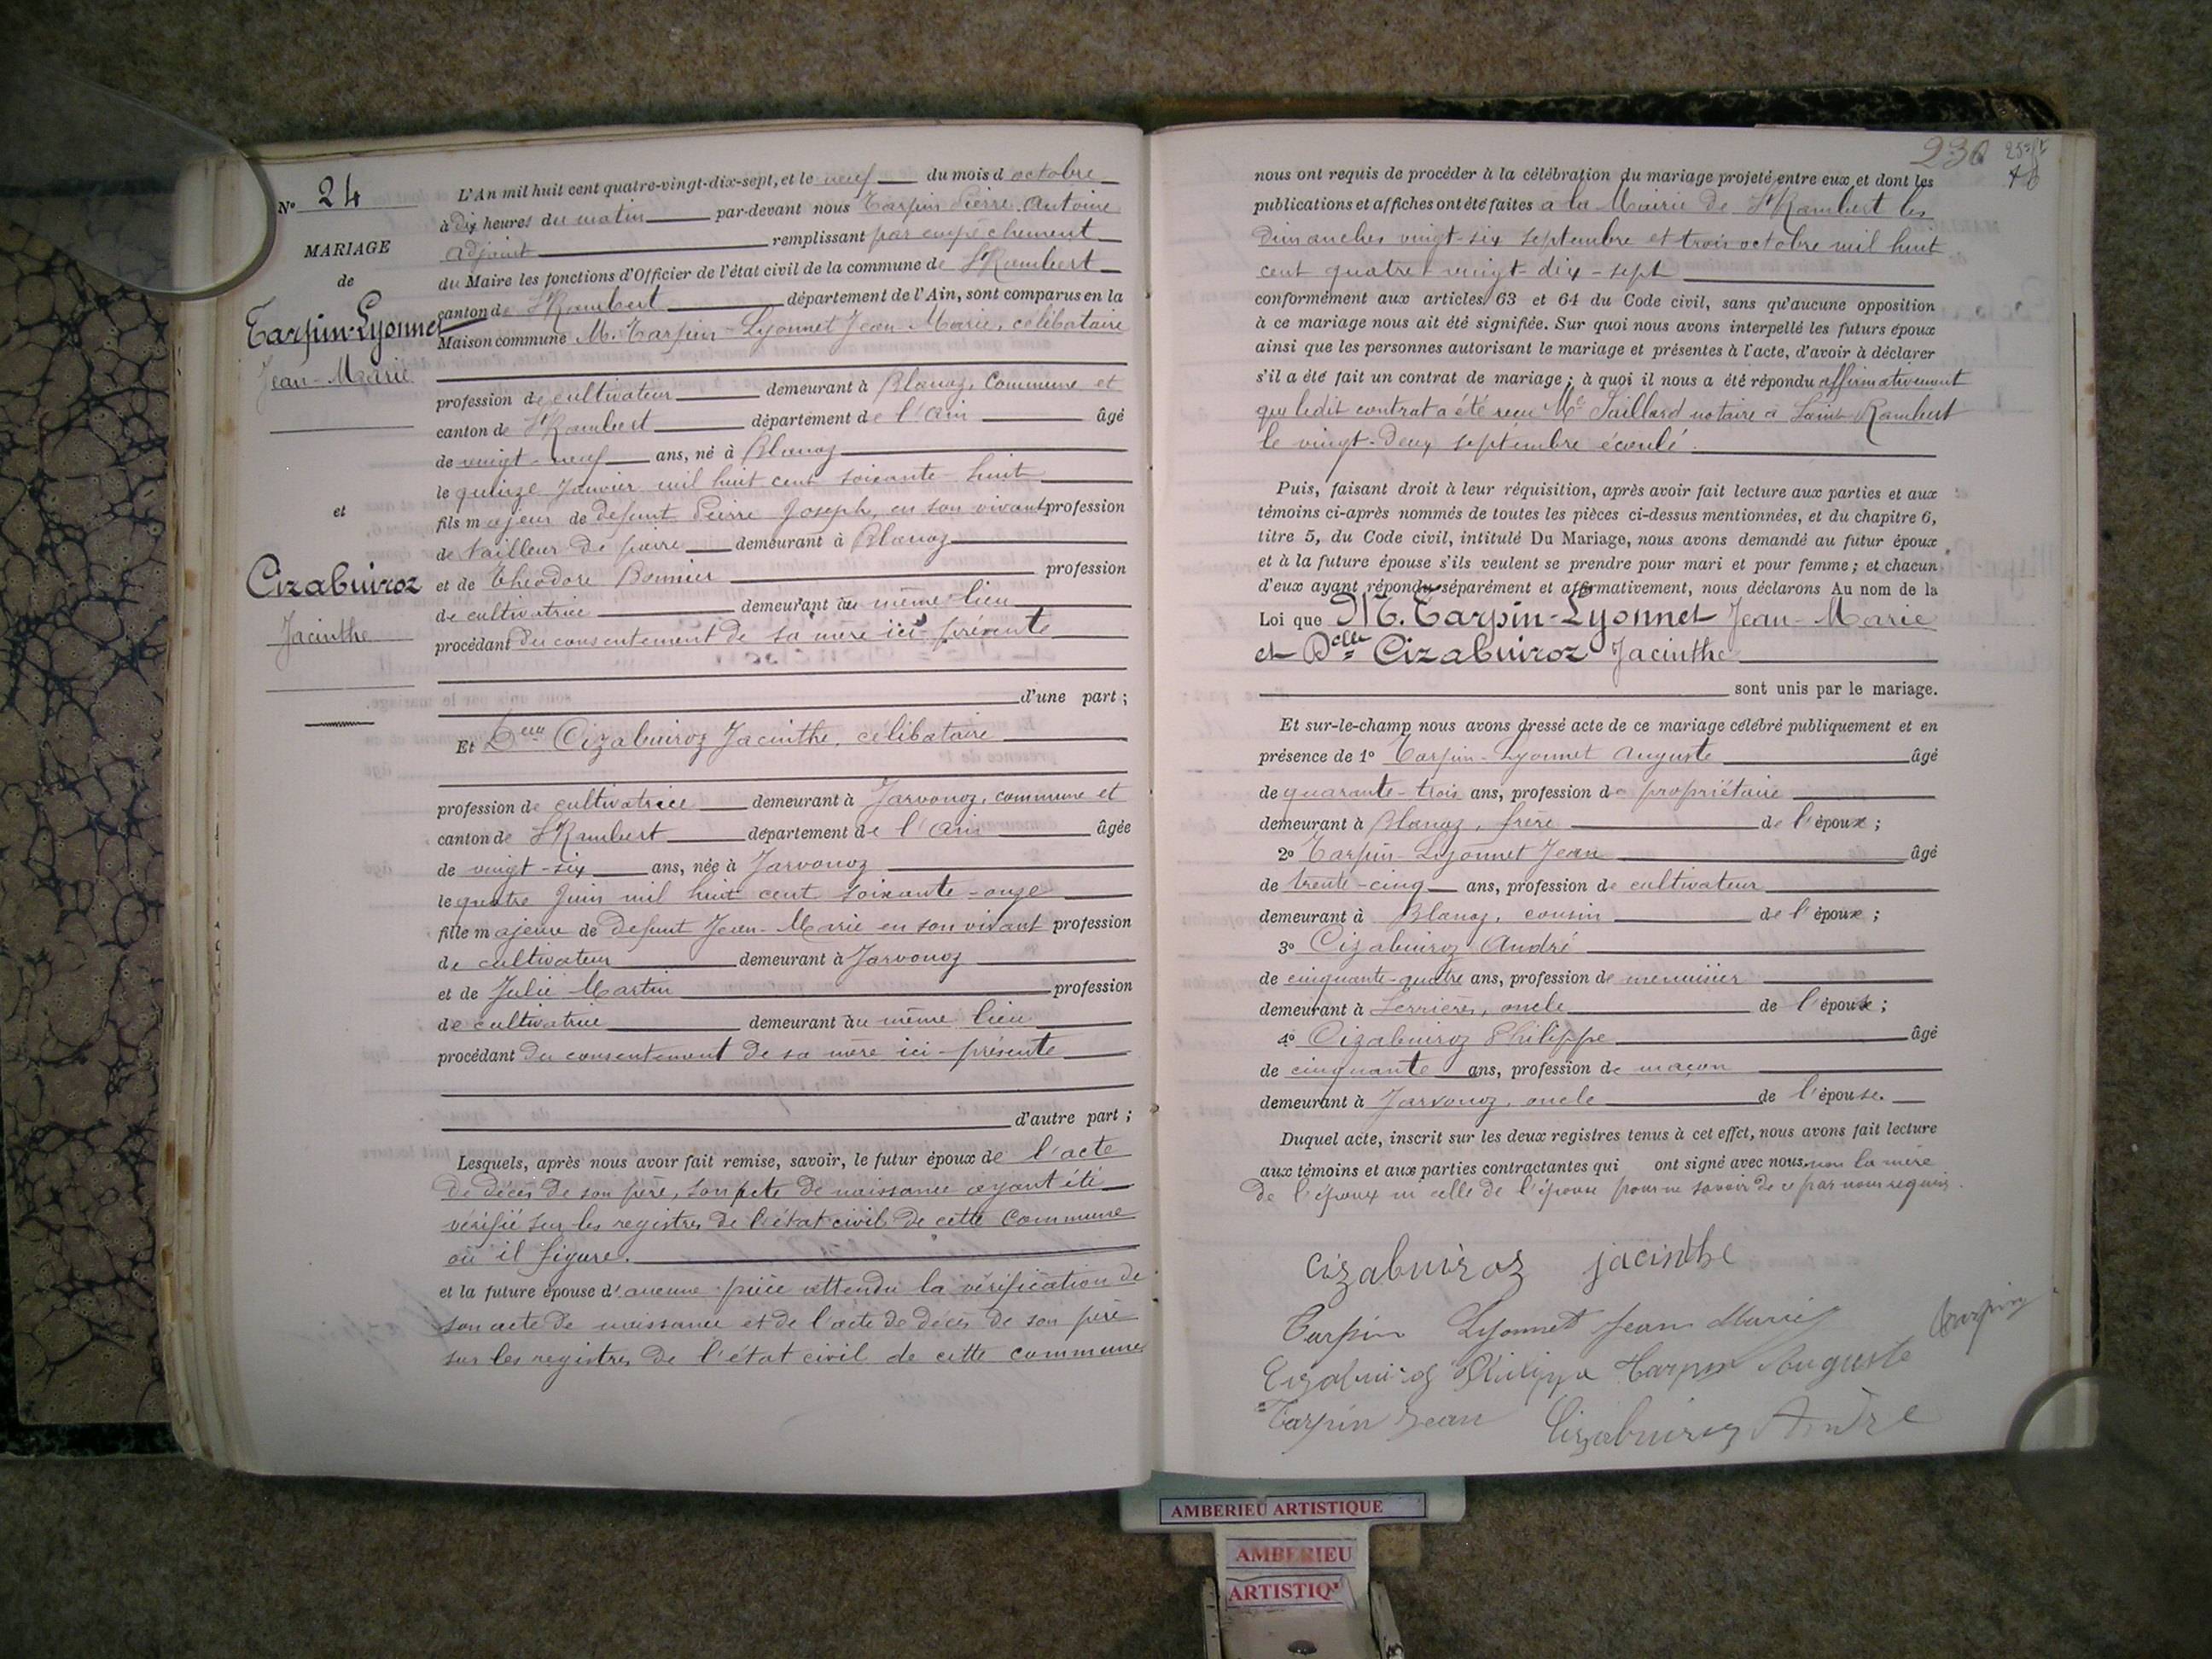 N° 24
MARIAGE
de
Tarpin-Lyonnet
Jean-Marie
et
Cizabuiroz
Jacinthe
L'An mil huit cent quatre-vingt-dix-sept, et le neuf du mois d'octobre
à dix heures du matin par-devant nous Tarpin Pierre Antoine
adjoint remplissant par empêchement
du Maire les fonctions d'Officier de l'état civil de la commune de St Rambert
canton de St Rambert département de l'Ain, sont comparus en la
Maison commune M. Tarpin-Lyonnet Jean-Marie, célibataire
profession de cultivateur demeurant à Blanaz, commune et
canton de St Rambert département de l'Ain âgé
de vingt-neuf ans, né à Blanaz
le quinze Janvier mil huit cent soixante-huit
fils majeur de défunt Pierre Joseph, en son vivant profession
de tailleur de pierre demeurant à Blanaz
et de Théodore Bonnier profession
de cultivatrice demeurant au même lieu
procédant du consentement de sa mère ici présente
d'une part ;
Et Delle Cizabuiroz Jacinthe, célibataire
profession de cultivatrice demeurant à Javornoz, commune et
canton de St Rambert département de l'Ain âgée
de vingt-six ans, née à Javornoz
le quatre Juin mil huit cent soixante-onze
fille majeure de défunt Jean-Marie en son vivant profession
de cultivateur demeurant à Javornoz
et de Julie Martin profession
de cultivatrice demeurant au même lieu
procédant du consentement de sa mère ici-présente
d'autre part ;
Lesquels, après nous avoir fait remise, savoir, le futur époux de l'acte
de décès de son père, son acte de naissance ayant été
vérifié sur les registres de l'état civil de cette commune
où il figure.
et la future épouse d'aucune pièce attendu la vérification de
son acte de naissance et de l'acte de décès de son père
sur les registres de l'état civil de cette commune
230
nous ont requis de procéder à la célébration du mariage projeté entre eux et dont les
publications et affiches ont été faites à la Mairie de St Rambert les
dimanches vingt-six septembre et trois octobre mil huit
cent quatre vingt-dix-sept
conformément aux articles 63 et 64 du Code civil, sans qu'aucune opposition
à ce mariage nous ait été signifiée. Sur quoi nous avons interpellé les futurs époux
ainsi que les personnes autorisant le mariage et présentes à l'acte, d'avoir à déclarer
s'il a été fait un contrat de mariage ; à quoi il nous a été répondu affirmativement
que ledit contrat a été reçu Me Saillard notaire à Saint Rambert
le vingt-deux septembre écoulé.
Puis, faisant droit à leur réquisition, après avoir fait lecture aux parties et aux
témoins ci-après nommés de toutes les pièces ci-dessus mentionnées, et du chapitre 6,
titre 5, du Code civil, intitulé Du Mariage, nous avons demandé au futur époux
et à la future épouse s'ils veulent se prendre pour mari et pour femme ; et chacun
d'eux ayant répondu séparément et affirmativement, nous déclarons Au nom de la
Loi que M. Tarpin-Lyonnet Jean-Marie
et Delle Cizabuiroz Jacinthe
sont unis par le mariage.
Et sur-le-champ nous avons dressé acte de ce mariage célébré publiquement et en
présence de 1° Tarpin-Lyonnet Auguste âgé
de quarante-trois ans, profession de propriétaire
demeurant à Blanaz, frère de l'époux ;
2° Tarpin-Lyonnet Jean âgé
de trente-cinq ans, profession de cultivateur
demeurant à Blanaz, cousin de l'époux ;
3° Cizabuiroz André
de cinquante-quatre ans, profession de menuisier
demeurant à Serrières, oncle de l'épouse ;
4° Cizabuiroz Philippe âgé
de cinquante ans, profession de maçon
demeurant à Javornoz, oncle de l'épouse.
Duquel acte, inscrit sur les deux registres tenus à cet effet, nous avons fait lecture
aux témoins et aux parties contractantes qui ont signé avec nous, non la mère
de l'époux ni celle de l'épouse pour ne savoir de ce par nous requis.
cizabuiroz jacinthe
Tarpin Lyonnet Jean Marie
Tarpin
Cizabuiroz Philippe Tarpin Auguste
Tarpin Jean Cizabuiroz André
AMBERIEU ARTISTIQUE
AMBERIEU
ARTISTIQ